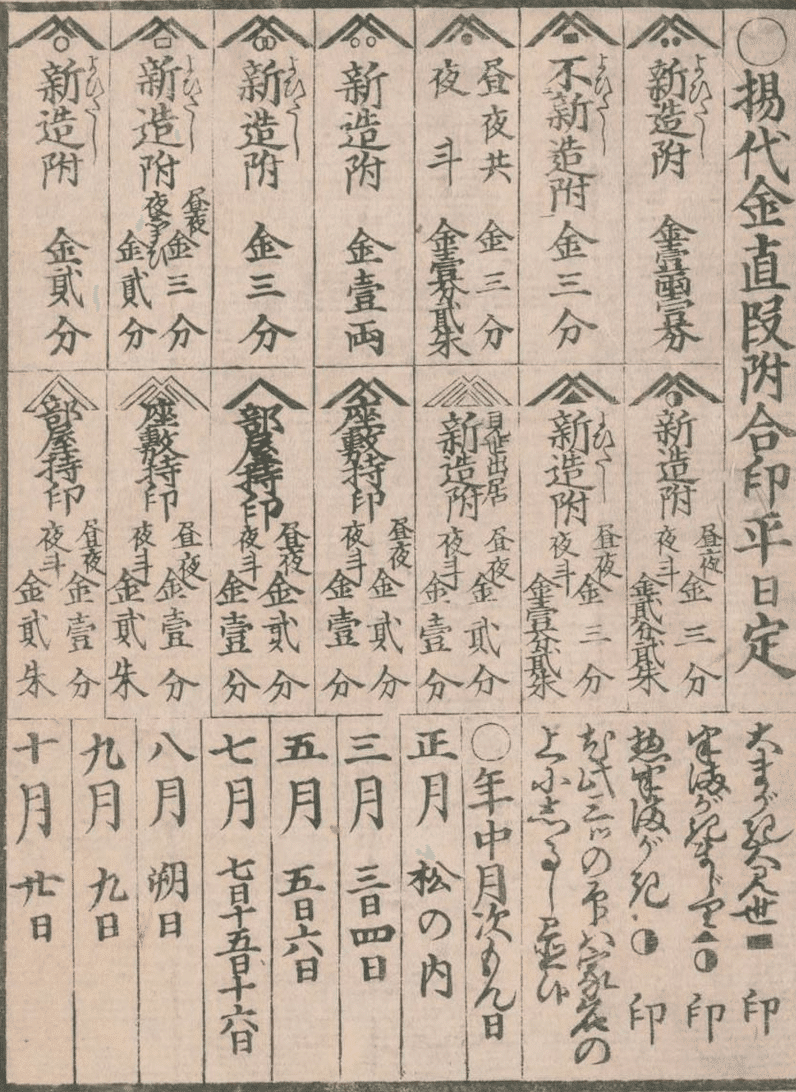 ○揚代金直段附合印平日定
よびだし
新造附 金壹両壹分
よびだし
不新造附 金三分
昼夜共 金三分
夜斗 金壹分貳朱
新造附 金壹両
よびだし
新造附 金三分
よびだし
新造附
昼夜 金三分
金貳分
よびだし
新造附 金貳分
新造附
昼夜 金三分
夜斗 金貳分貳朱
よびだし
新造附
昼夜 金三分
夜斗 金壹分貳朱
見世出居
新造附
昼夜 金貳分
夜斗 金壹分
座敷持印
昼夜 金貳分
夜斗 金壹分
部屋持印
昼夜 金貳分
夜斗 金壹分
座敷持印
昼夜 金壹分
夜斗 金貳朱
部屋持印
昼夜 金壹分
夜斗 金貳朱
大まがき大見世 印
半まがきまじり 印
惣半まがき 印
此三つの印ハ家名の
上に志るし
○年中月次もん日
正月 松の内
三月 三日四日
五月 五日六日
七月 七日十五日十六日
八月 朔日
九月 九日
十月 廿日